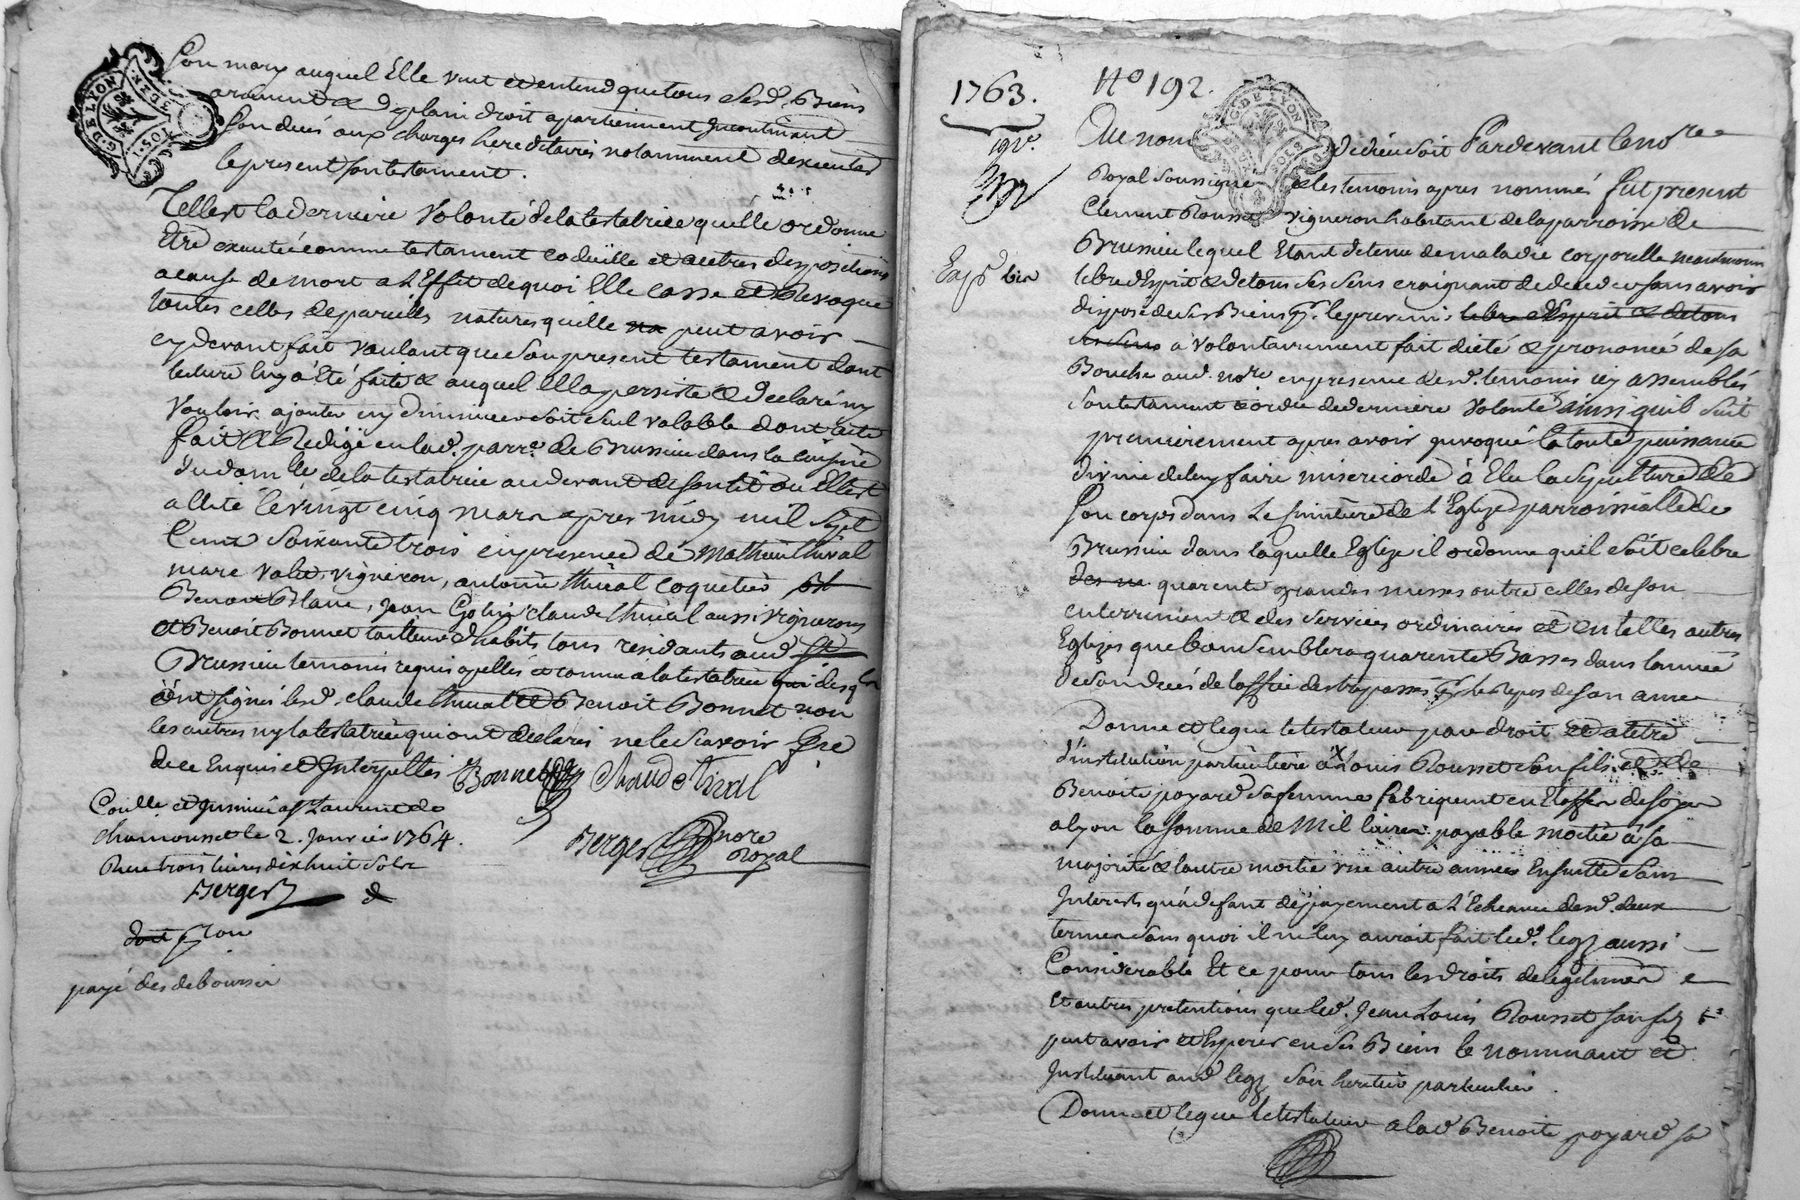 son mary auquel Elle veut et entend que tous Sesd. Biens
de plain droit apartiennent Incontinant
son décés aux charges hereditaires notamment dexecuter
le present son testament.
Telle est la derniere Volonté de la testatrice quelle ordonne
Etre executée comme testament codicille et autres dispositions
acause de mort a L'Effet dequoi Elle casse et Revoque
toutes celles de pareille nature quelle peut avoir
cy devant fait voulant que son present testament dont
lecture luy a Eté faite & auquel Ella persisté & declaré ny
vouloir ajouter ny diminuer soit seul valable dont acte
fait & Redigé en lad. parr.e de Brussieu dans la cuisine
du dom.lle de la testatrice au devant de son lit ou Elle est
allité le vingt cinq mars apres midy mil Sept
Cent Soixante trois en presence de Mathieu thival
marc vigneron, antoine thival coquetier
Benoit Blanc, Jean claude thival aussi vignerons
et Benoit Bonnet tailleur d'habits tous residants aud.
Brussieu temoins requis apellés et connu a la testatrice qui desq.ls
ont signés lesd. claude thival et Benoit Bonnet non
les autres ny la testatrice qui ont declarés ne le scavoir
de ce Enquis et Interpellés Bonnet Claude Tival
Berger nore Royal
Con.lle et Insinué a St Laurent de
chamousset le 2. Janvier 1764.
Receu trois livres dix huit sols
Berger
doit
payé des deboursés
1763. N° 192.
Au nom de dieu soit Pardevant le no.re
Royal soussigné & les temoins apres nommés fut present
Clement Rousset vigneron habitant de la parroisse de
Brussieu lequel Etant detenu de maladie corporelle neanmoins
libre d'Esprit & de tous ses sens craignant de deceder sans avoir
disposé de ses Biens libre d'Esprit & de tous
ses sens a volontairement fait dicté & prononcé de sa
Bouche aud. no.re en presence desd. temoins icy assemblés
son testament & ordre de derniere volonté ainsi quil suit
premierement apres avoir invoqué la toute puissance
divine de luy faire misericorde à Elu la sepulture de
son corps dans Le simitiere de L'Eglize parroissialle de
Brussieu dans laquelle Eglize il ordonne quil soit celebré
quarente grandes messes outre celles de son
enterrement & des services ordinaires et en telles autres
Eglizes que bon semblera quarente Basses dans lannée
de son decés de loffice des trepassés pr. le Repos de son ame
Donne et legue le testateur par droit et a titre
d'institution particuliere à Louis Rousset son fils et de
Benoite poyard sa femme fabriquent en Etoffes de soye
a lyon la somme de Mil livres payable moitié à sa
majorité & lautre moitié une autre année Ensuitte sans
Interests qu'a defaut de payement a L'Echeance desd. deux
termes sans quoi il ne luy auroit fait led. legz aussi
Considerable Et ce pour tous les droits de legitime
Et autres pretentions que led. Jean Louis Rousset son fils
peut avoir et Esperer en ses Biens le nommant et
Instituant aud. legz son heritier particulier.
Donne et legue le testateur a lad. Benoite poyard sa